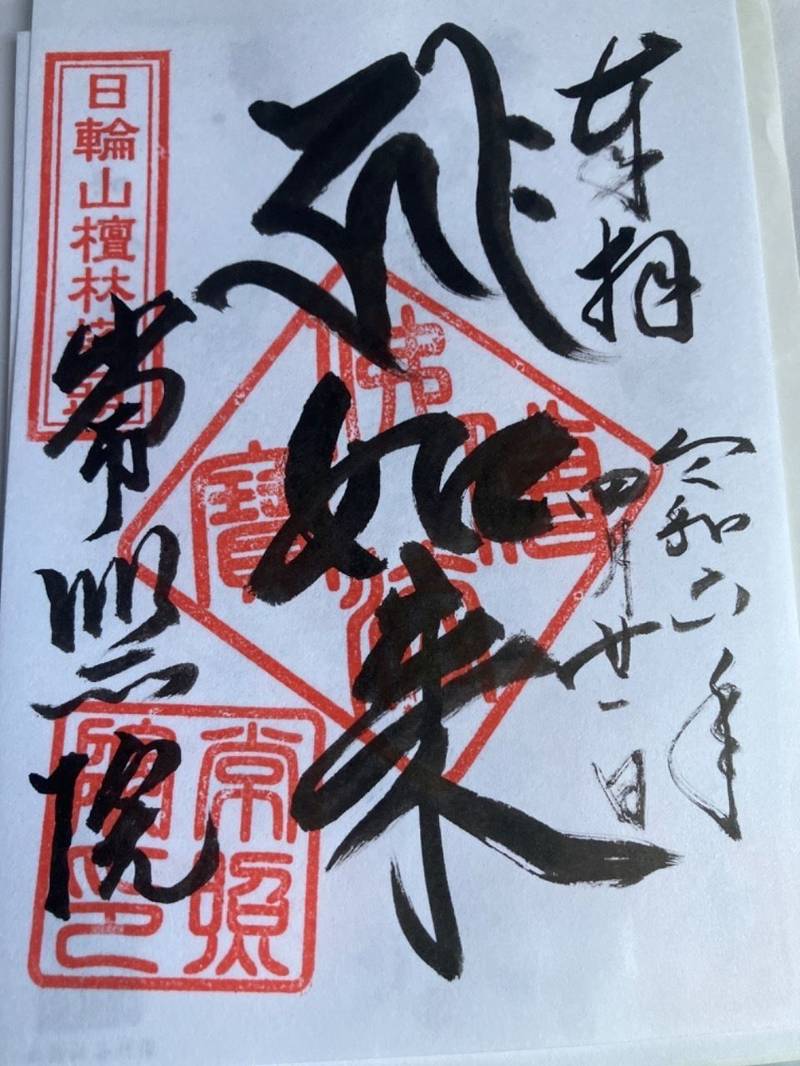 奉拝
令和六年
四月廿一日
如来
佛法僧寶
日輪山檀林
常照院
常照院印